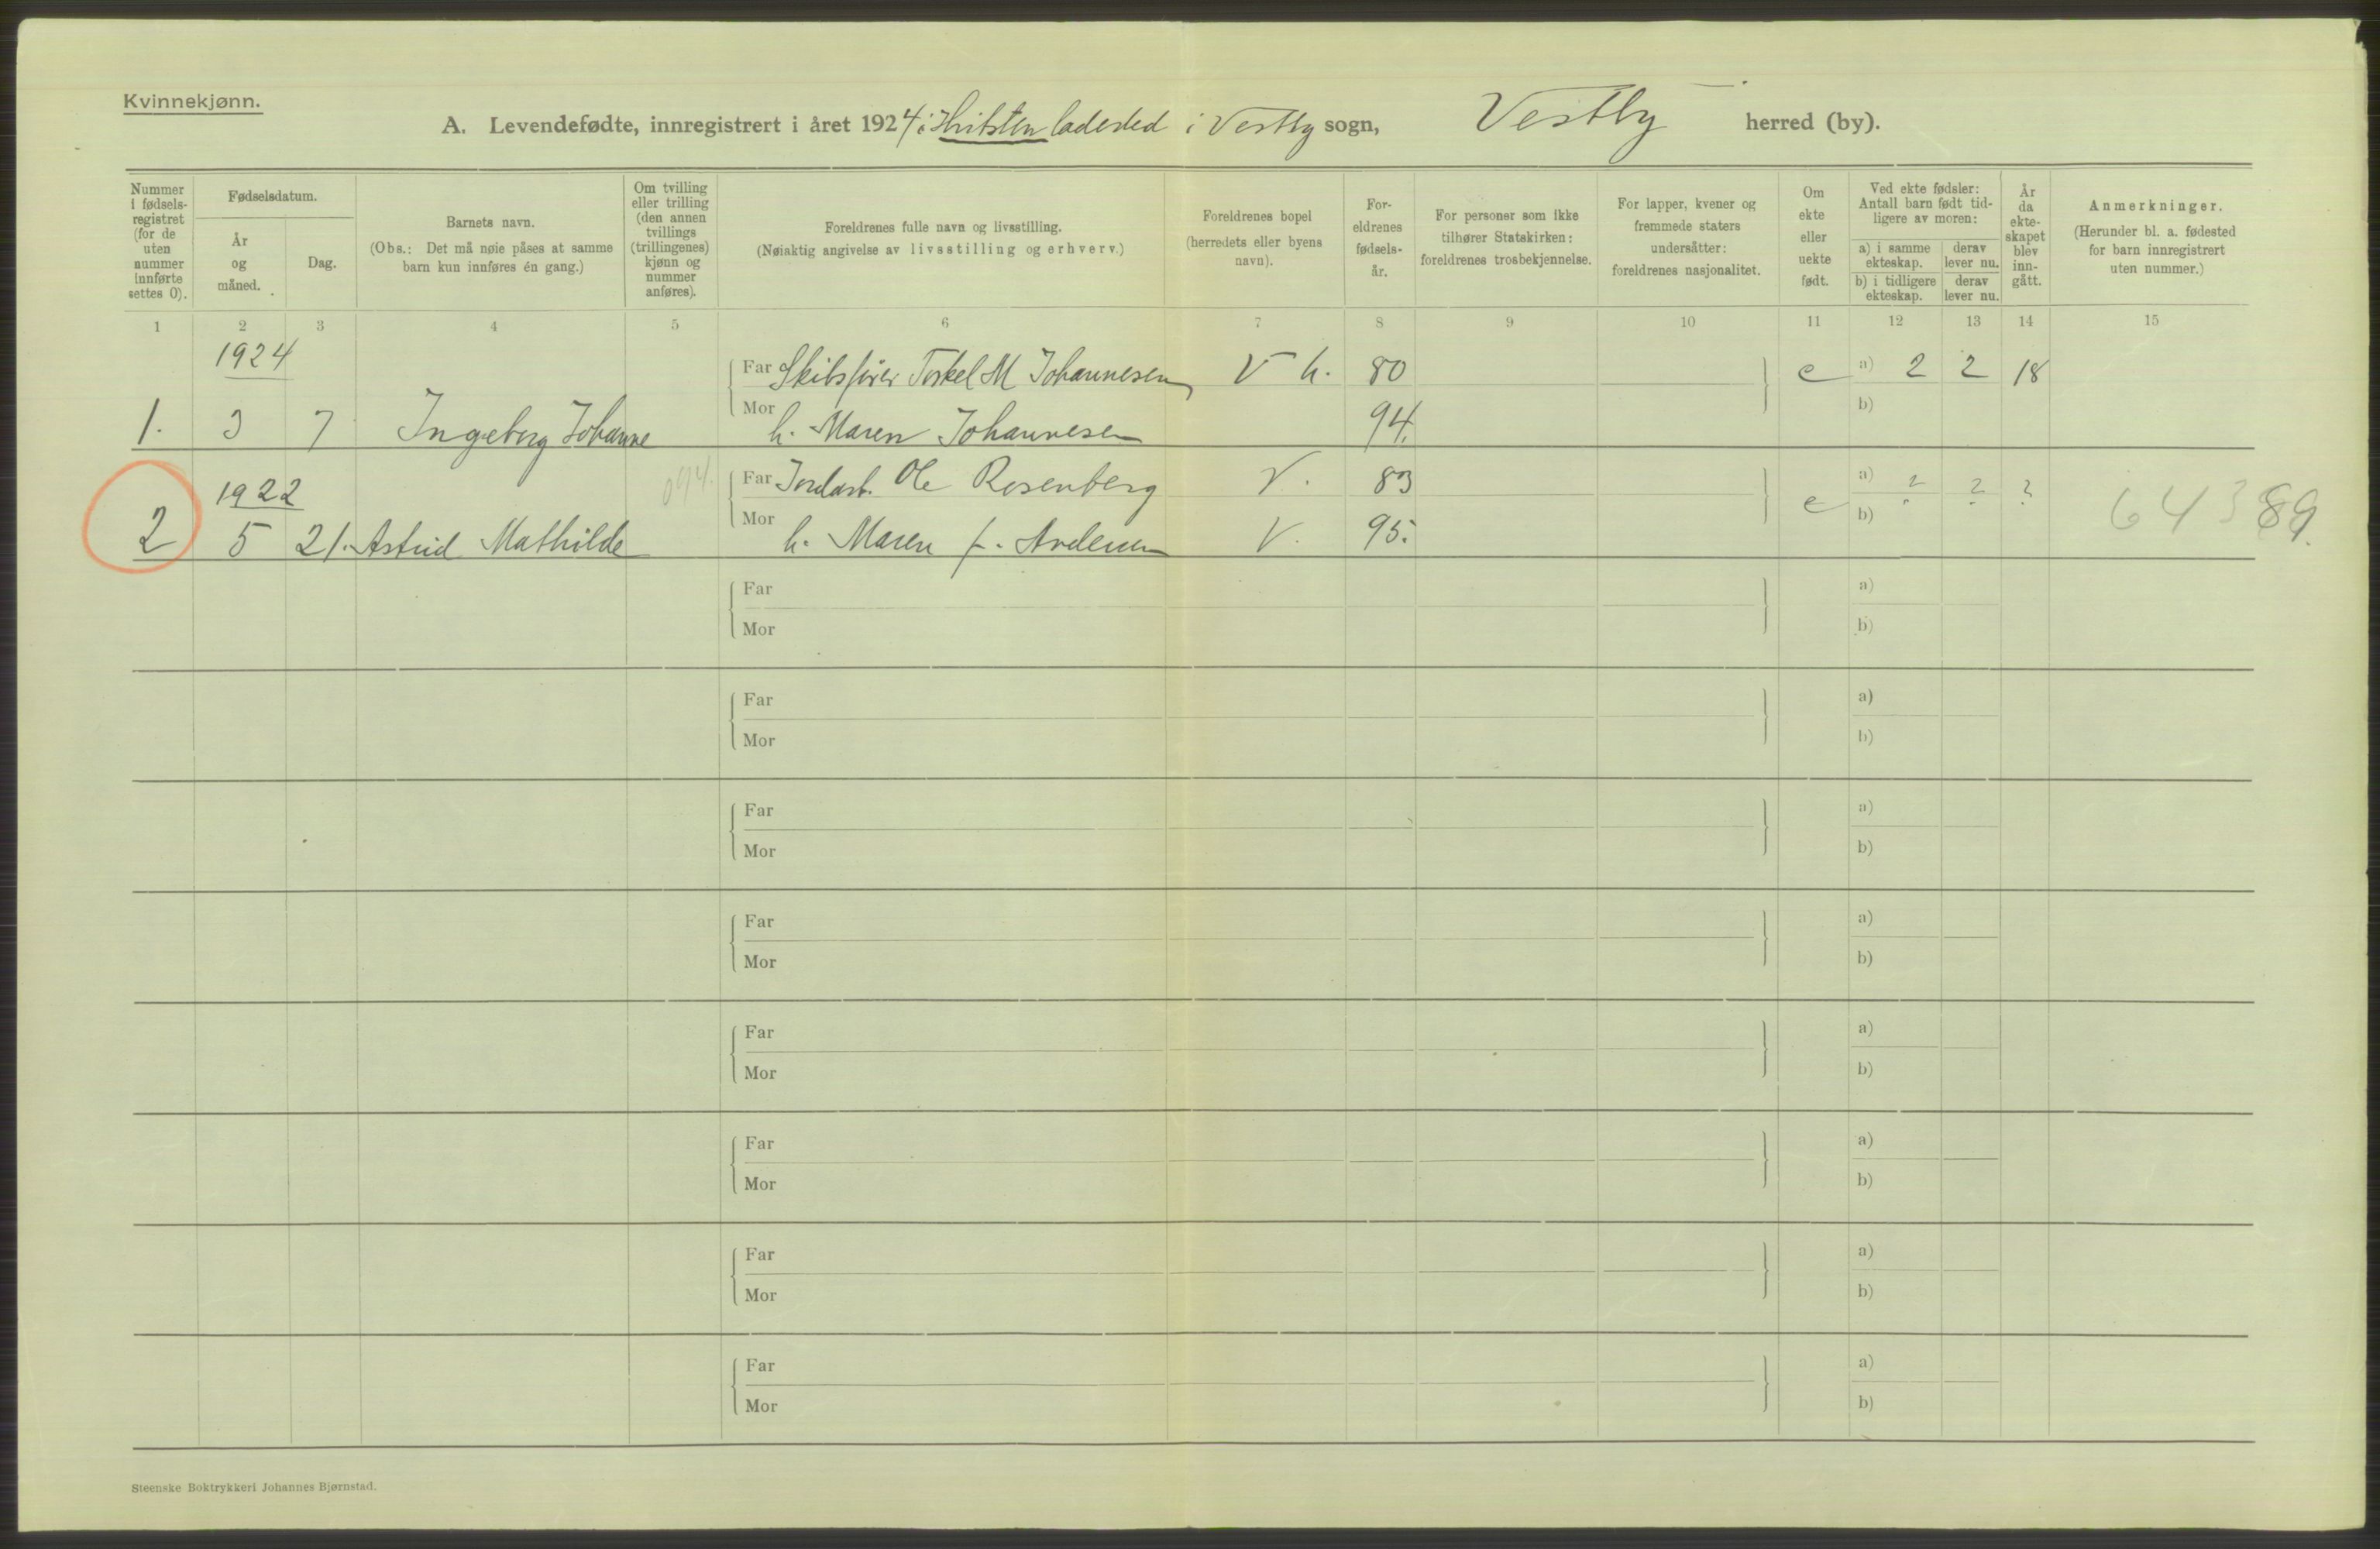 Kvinnekjønn.
A. Levendefødte, innregistrert i året 1924 i Hvitsten ladested i Vestby sogn, Vestby herred (by).
Nummer i fødsels-registret (for de uten nummer innførte settes 0).
Fødselsdatum.
År og måned.
Dag.
Barnets navn.
(Obs.: Det må nøie påses at samme barn kun innføres én gang.)
Om tvilling eller trilling (den annen tvillings (trillingenes) kjønn og nummer anføres).
Foreldrenes fulle navn og livsstilling.
(Nøiaktig angivelse av livsstilling og erhverv.)
Foreldrenes bopel (herredets eller byens navn).
For-eldrenes fødsels-år.
For personer som ikke tilhører Statskirken: foreldrenes trosbekjennelse.
For lapper, kvener og fremmede staters undersåtter: foreldrenes nasjonalitet.
Om ekte eller uekte født.
Ved ekte fødsler: Antall barn født tid-ligere av moren:
a) i samme ekteskap. derav lever nu.
b) i tidligere ekteskap. derav lever nu.
År da ekte-skapet blev inn-gått.
Anmerkninger.
(Herunder bl. a. fødested for barn innregistrert uten nummer.)
1 2 3 4 5 6 7 8 9 10 11 12 13 14 15
1924
Far Skibsfører Torkel M Johannesen V h. 80 e a) 2 2 18
1. 3 7 Ingeborg Johanne Mor h. Maren Johannesen 94. b)
1922 094. Far Jordarb. Ole Rosenberg V. 83 e a) ? ? ? 64389.
2 5 21. Astrid Mathilde Mor h. Maren f. Andersen V. 95. b)
Far a)
Mor b)
Far a)
Mor b)
Far a)
Mor b)
Far a)
Mor b)
Far a)
Mor b)
Far a)
Mor b)
Far a)
Mor b)
Far a)
Mor b)
Steenske Boktrykkeri Johannes Bjørnstad.